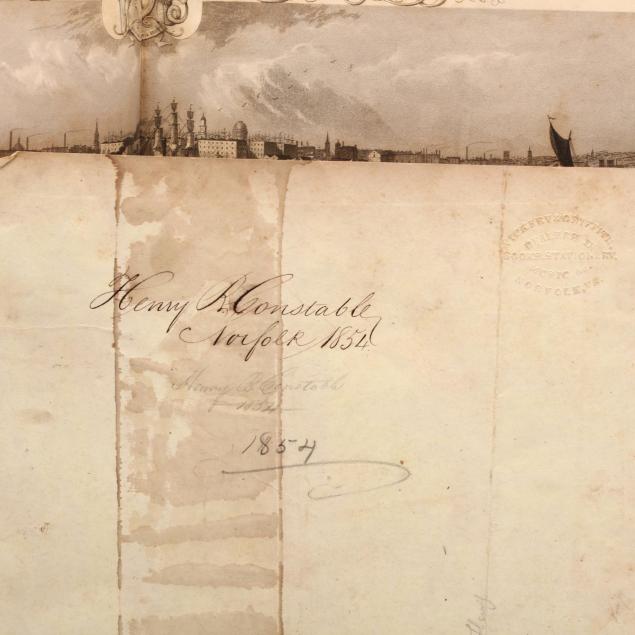 Henry B Constable
Norfolk 1854
Henry B Constable
1854
1854
BOOKS, STATIONERY,
MUSIC
NORFOLK, VA.